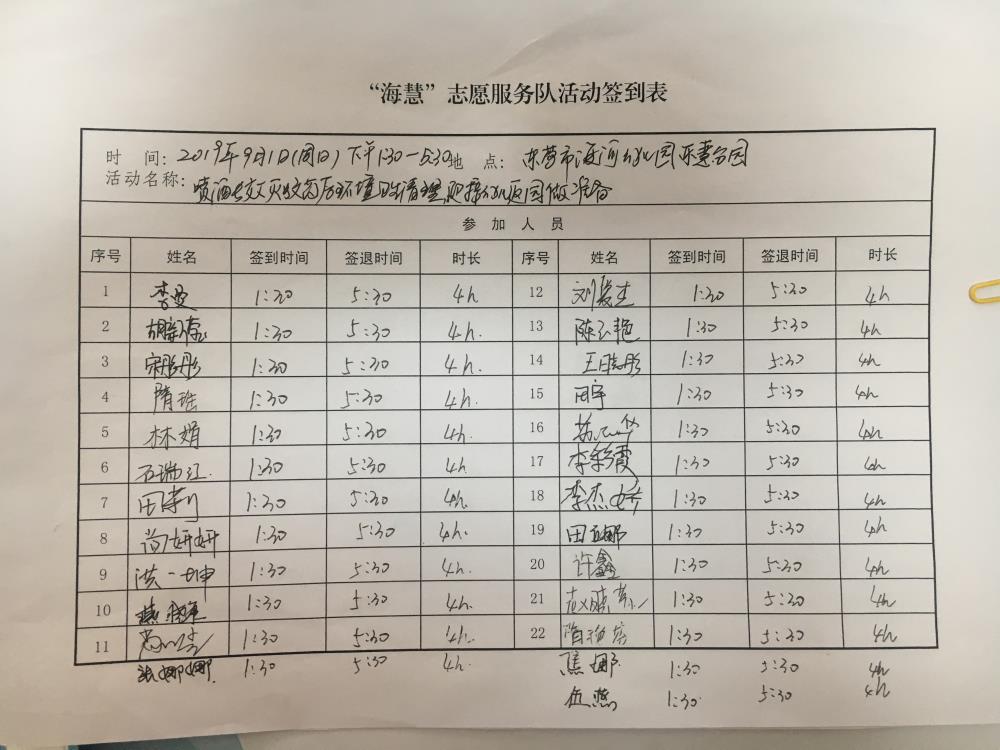 “海慧”志愿服务队活动签到表
时 间：2019年9月1日(周日)下午1:30—5:30 地 点：东营市海河幼儿园东慧台园
活动名称：喷洒 灭 后环境 清理,迎接幼儿返园做准备
参 加 人 员
序号 姓名 签到时间 签退时间 时长 序号 姓名 签到时间 签退时间 时长
1 1:30 5:30 4h 12 1:30 5:30 4h
2 1:30 5:30 4h. 13 陈玉艳 1:30 5:30 4h
3 宋彤彤 1:30 5:30 4h. 14 王晓彤 1:30 5:30 4h
4 隋瑶 1:30 5:30 4h. 15 1:30 5:30 4h
5 林娟 1:30 5:30 4h. 16 1:30 5:30 4h
6 石瑞江. 1:30 5:30 4h 17 李彩霞 1:30 5:30 4h
7 田莉 1:30 5:30 4h 18 李杰 1:30 5:30 4h
8 尚妍妍 1:30 5:30 4h. 19 田娜 1:30 5:30 4h
9 洪一坤 1:30 5:30 4h. 20 许鑫 1:30 5:30 4h
10 1:30 5:30 4h. 21 1:30 5:30 4h
11 1:30 5:30 4h. 22 1:30 5:30 4h
张娜娜. 1:30 5:30 4h. 焦娜 1:30 5:30 4h
伍燕 1:30 5:30 4h